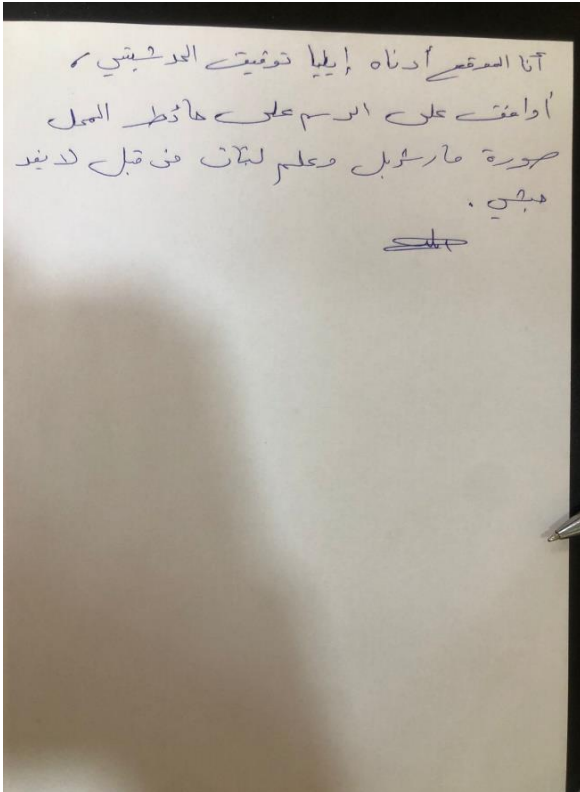 أنا الموقع أدناه إيليا توفيق الحدشيتي،
أوافق على الرسم على حائط المحل
صورة مار شربل وعلم لبنان من قبل لايف
حبشي.